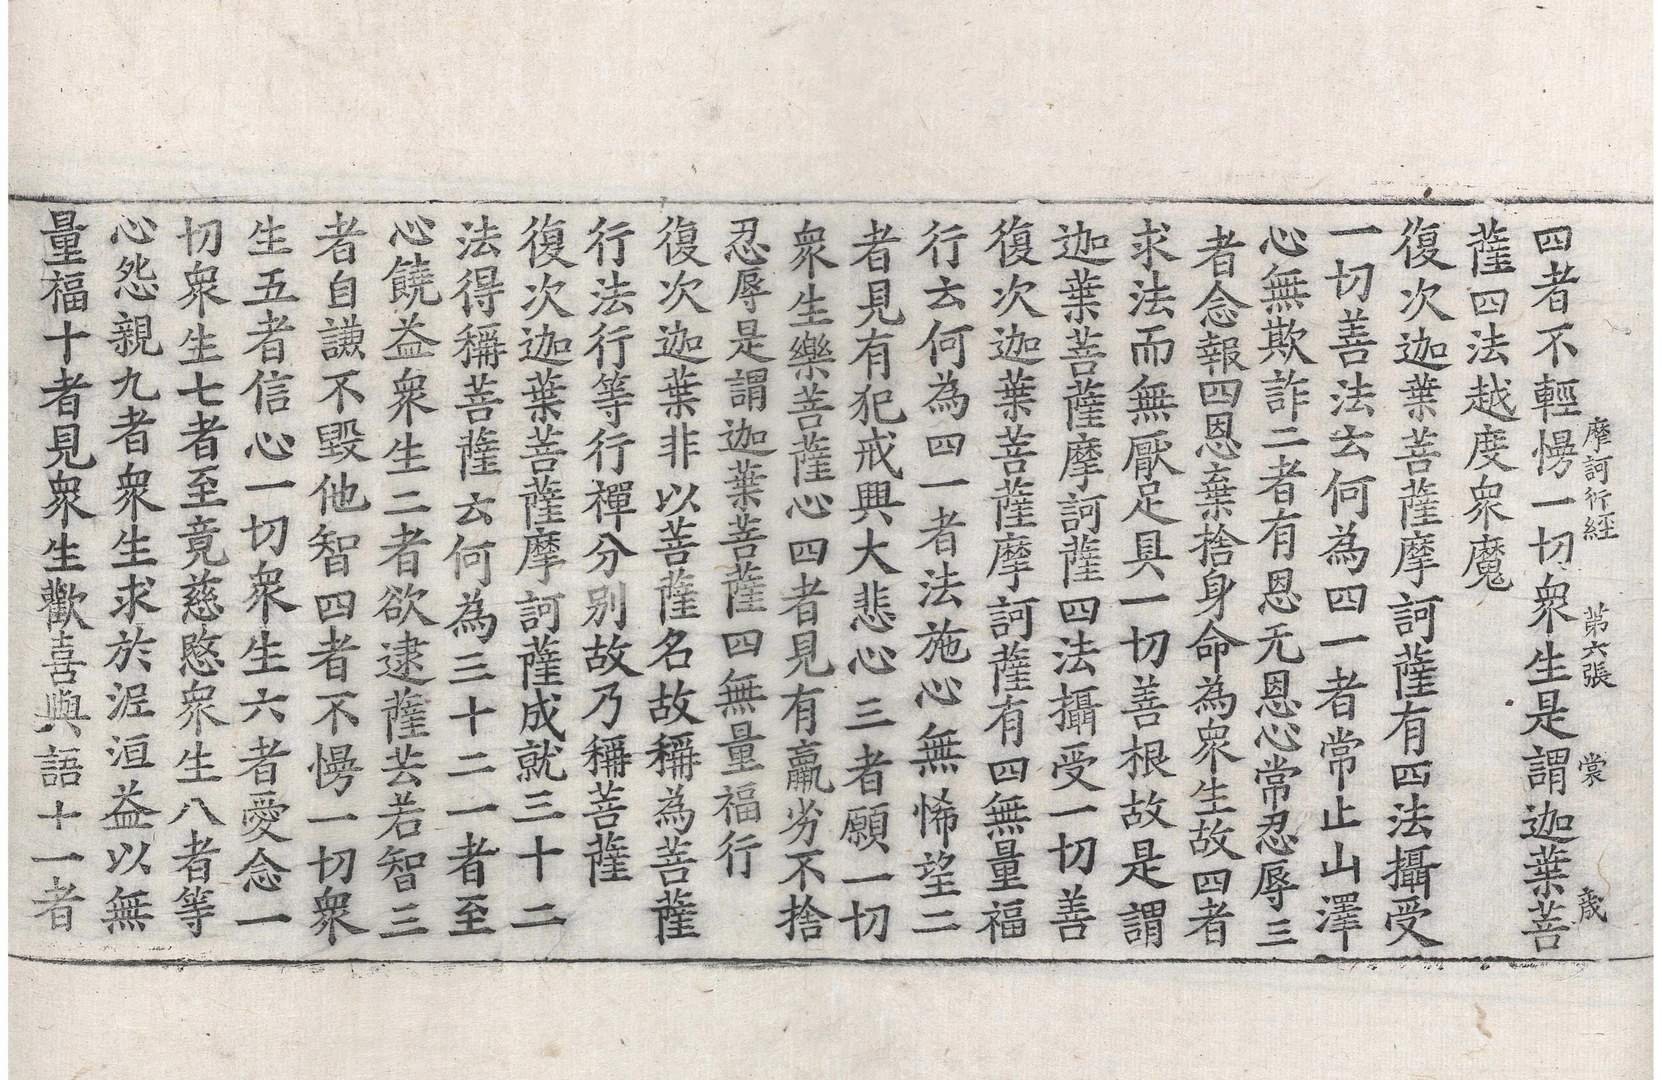 摩訶衍經 第六張 裳 歲
四者不輕慢一切衆生是謂迦葉菩
薩四法越度衆魔
復次迦葉菩薩摩訶薩有四法攝受
一切善法云何為四一者常止山澤
心無欺詐二者有恩无恩心常忍辱三
者念報四恩棄捨身命為衆生故四者
求法而無厭足具一切善根故是謂
迦葉菩薩摩訶薩四法攝受一切善
復次迦葉菩薩摩訶薩有四無量福
行云何為四一者法施心無悕望二
者見有犯戒興大悲心三者願一切
衆生樂菩薩心四者見有羸劣不捨
忍辱是謂迦葉菩薩四無量福行
復次迦葉非以菩薩名故稱為菩薩
行法行等行禪分別故乃稱菩薩
復次迦葉菩薩摩訶薩成就三十二
法得稱菩薩云何為三十二一者至
心饒益衆生二者欲逮薩芸若智三
者自謙不毀他智四者不慢一切衆
生五者信心一切衆生六者愛念一
切衆生七者至竟慈愍衆生八者等
心怨親九者衆生求於泥洹益以無
量福十者見衆生歡喜與語十一者